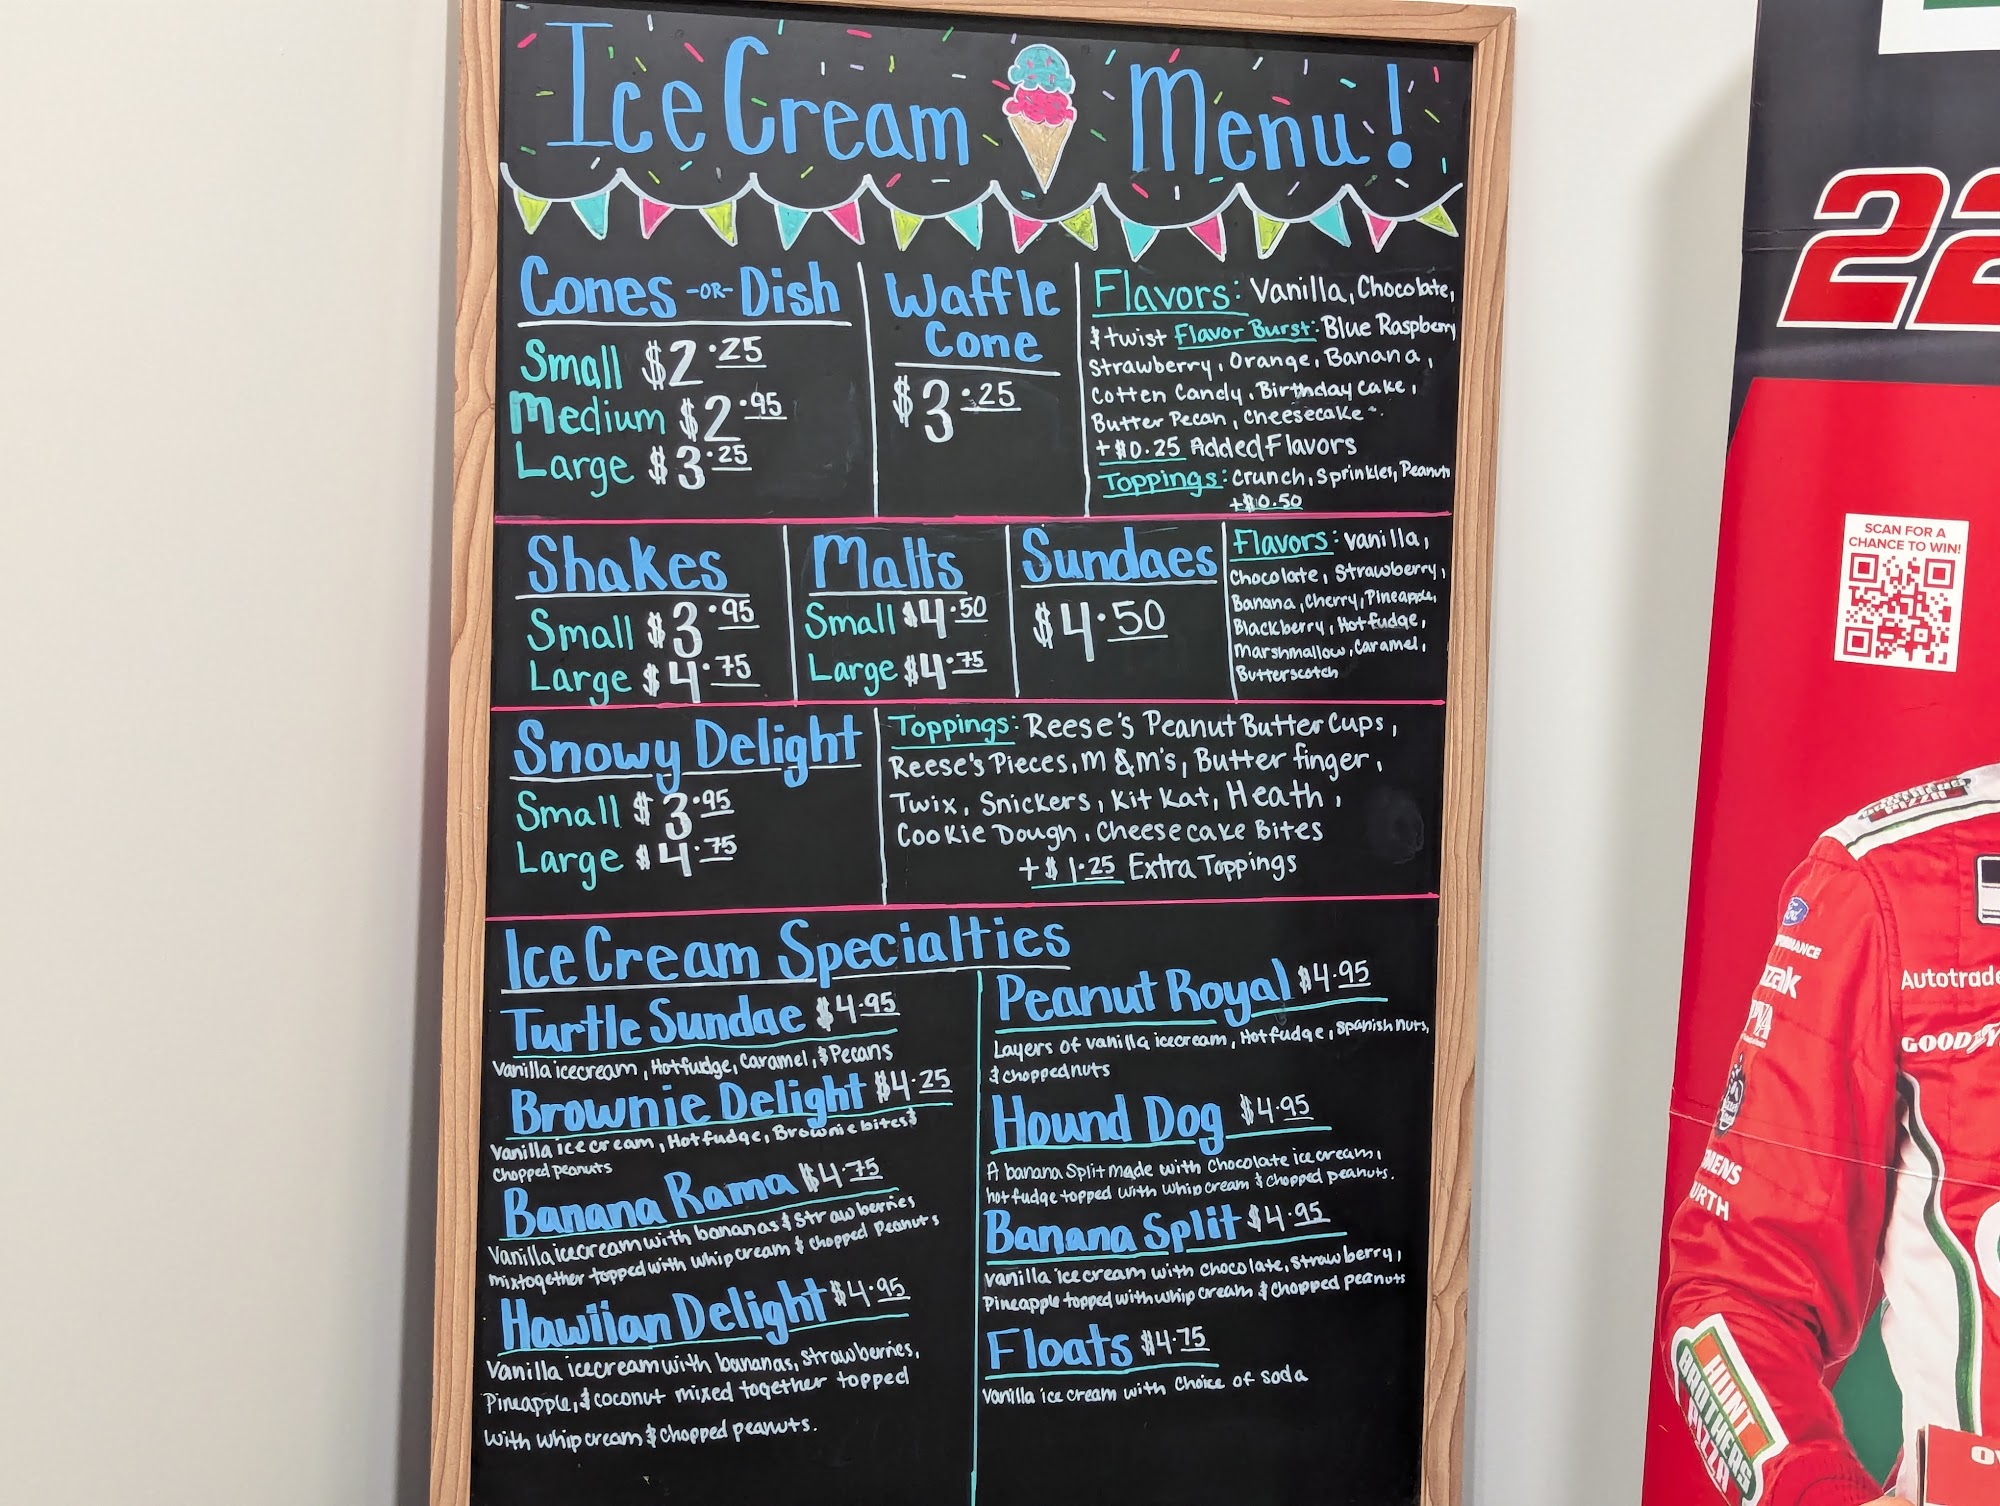 Ice Cream Menu!
Cones -OR- Dish
Small $2.25
Medium $2.95
Large $3.25
Waffle
Cone
$3.25
Flavors: Vanilla, Chocolate,
& twist Flavor Burst: Blue Raspberry
Strawberry, Orange, Banana,
Cotten Candy, Birthday cake,
Butter Pecan, Cheesecake~
+$0.25 Added Flavors
Toppings: Crunch, Sprinkles, Peanuts
+$0.50
Shakes
Small $3.95
Large $4.75
Malts
Small $4.50
Large $4.75
Sundaes
$4.50
Flavors: Vanilla,
Chocolate, Strawberry,
Banana, Cherry, Pineapple,
Blackberry, Hot fudge,
Marshmallow, Caramel,
Butterscotch
Snowy Delight
Small $3.95
Large $4.75
Toppings: Reese's Peanut Butter Cups,
Reese's Pieces, M&M's, Butter finger,
Twix, Snickers, Kit Kat, Heath,
Cookie Dough, Cheesecake Bites
+$1.25 Extra Toppings
Ice Cream Specialties
Turtle Sundae $4.95
Vanilla icecream, Hotfudge, Caramel, & Pecans
Brownie Delight $4.25
Vanilla ice cream, Hot fudge, Brownie bites &
Chopped peanuts
Banana Rama $4.75
Vanilla icecream with bananas & strawberries
mixtogether topped with whip cream & chopped Peanuts
Hawiian Delight $4.95
Vanilla icecream with bananas, strawberries,
Pineapple, & coconut mixed together topped
with whip cream & chopped peanuts.
Peanut Royal $4.95
Layers of vanilla icecream, Hot fudge, spanish nuts,
& chopped nuts
Hound Dog $4.95
A banana Split made with chocolate ice cream,
hot fudge topped with whip cream & chopped peanuts.
Banana Split $4.95
Vanilla ice cream with chocolate, strawberry,
Pineapple topped with whip cream & chopped peanuts
Floats $4.75
Vanilla ice cream with choice of soda
22
SCAN FOR A
CHANCE TO WIN!
Ford
Autotrade
GOODY
HUNT
BROTHERS
PIZZA